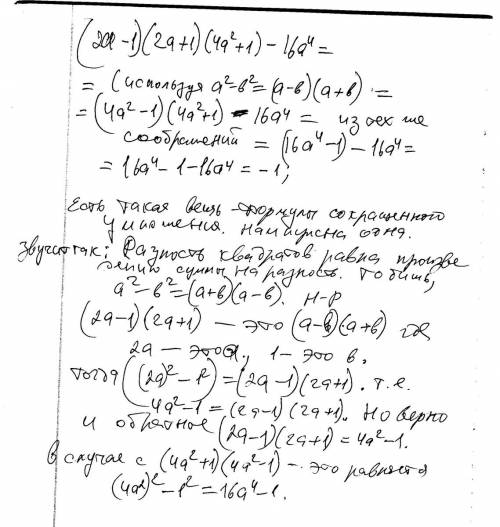 (2a-1)(2a+1)(4a²+1)-16a⁴=
= (используя a²-в²=(a-в)(a+в) =
= (4a²-1)(4a²+1)-16a⁴= из тех же
соображений = (16a⁴-1)-16a⁴=
= 16a⁴-1-16a⁴=-1;
Есть такая вещь - формулы сокращенного
умножения. нам нужна одна.
Звучит так: Разность квадратов равна произве
дению суммы на разность. то бишь,
a²-в²=(a+в)(a-в). Н-р
(2a-1)(2a+1) - это (a-в)(a+в) где
2a - это a, 1- это в.
тогда ((2a)²-1²)=(2a-1)(2a+1). т.е.
4a²-1=(2a-1)(2a+1). Но верно
и обратное (2a-1)(2a+1)=4a²-1.
В случае с (4a²+1)(4a²-1) - это равняется
(4a²)²-1²=16a⁴-1.